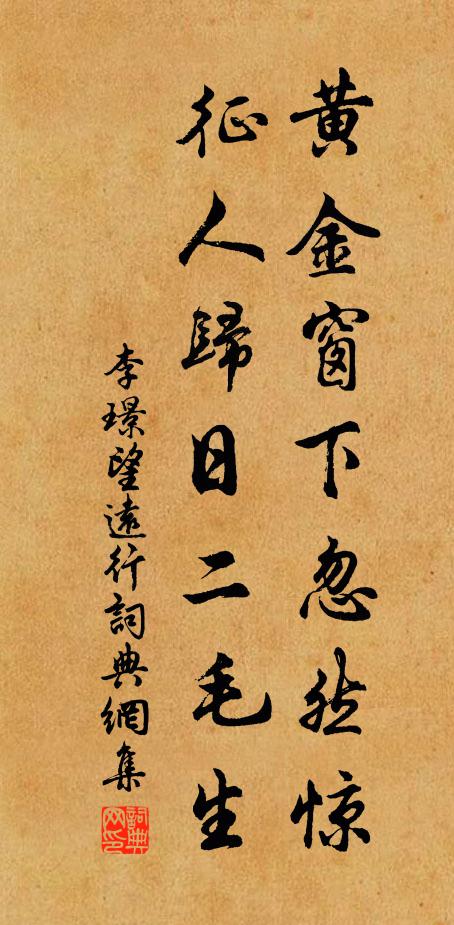 黄金窗下忽然惊
征人歸日二毛生
李璟望遠行詞典網集
詞典網印